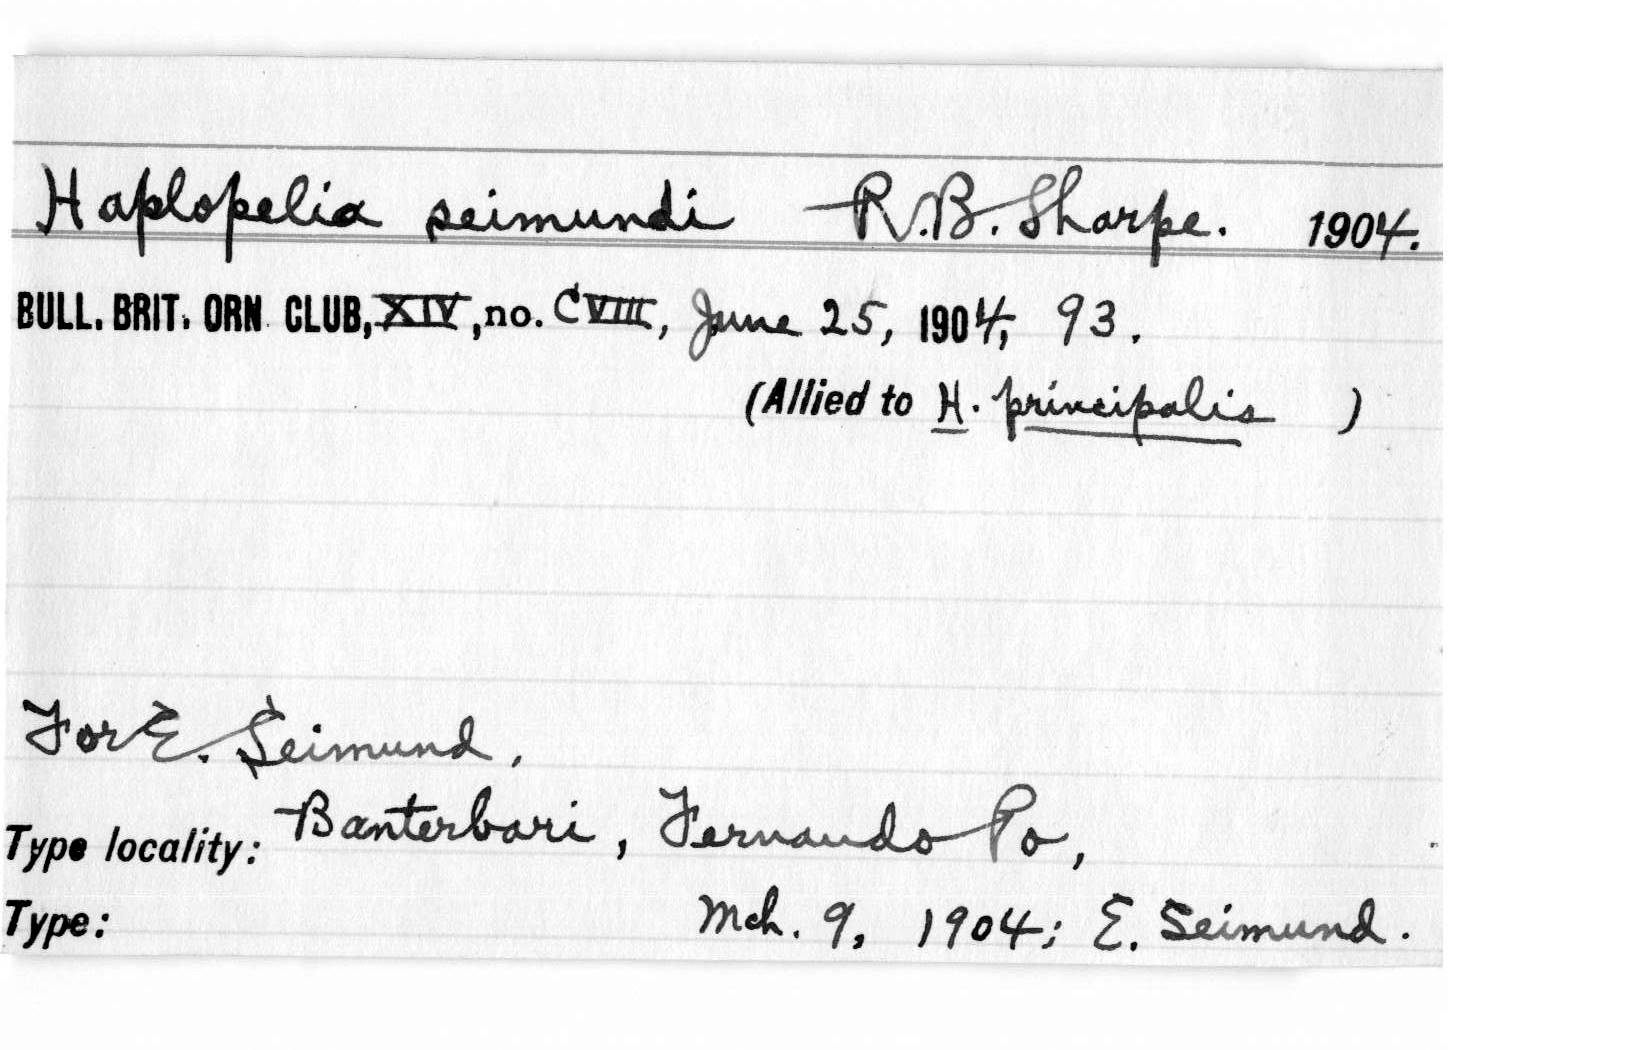 Haplopelia seimundi R.B. Sharpe. 1904.
BULL. BRIT. ORN CLUB, XIV, no. CVIII, June 25, 1904, 93.
(Allied to H. principalis )
For E. Seimund,
Type locality: Banterbari, Fernando Po,
Type: Mch. 9, 1904; E. Seimund.